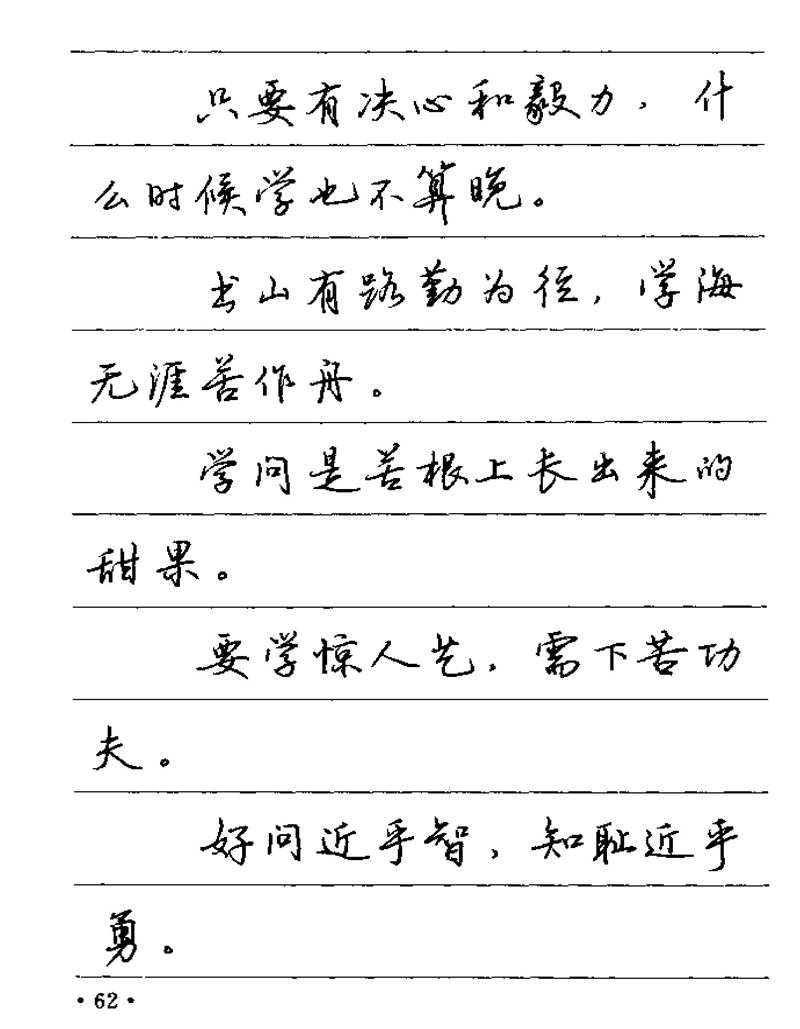 只要有决心和毅力，什
么时候学也不算晚。
书山有路勤为径，学海
无涯苦作舟。
学问是苦根上长出来的
甜果。
要学惊人艺，需下苦功
夫。
好问近乎智，知耻近乎
勇。
·62·